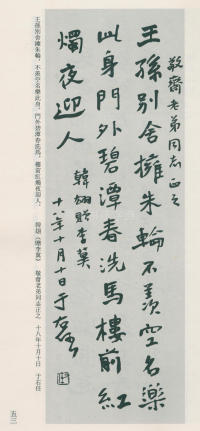 敬齋老弟同志正之
王孫別舍擁朱輪不羨空名樂
此身門外碧潭春洗馬樓前紅
燭夜迎人
韓翃贈李翼
十八年十月十日于右任
王孫別舍擁朱輪，不羨空名樂此身。門外碧潭春洗馬，樓前紅燭夜迎人。
韓翃《贈李翼》 敬齋老弟同志正之 十八年十月十日 于右任
五三